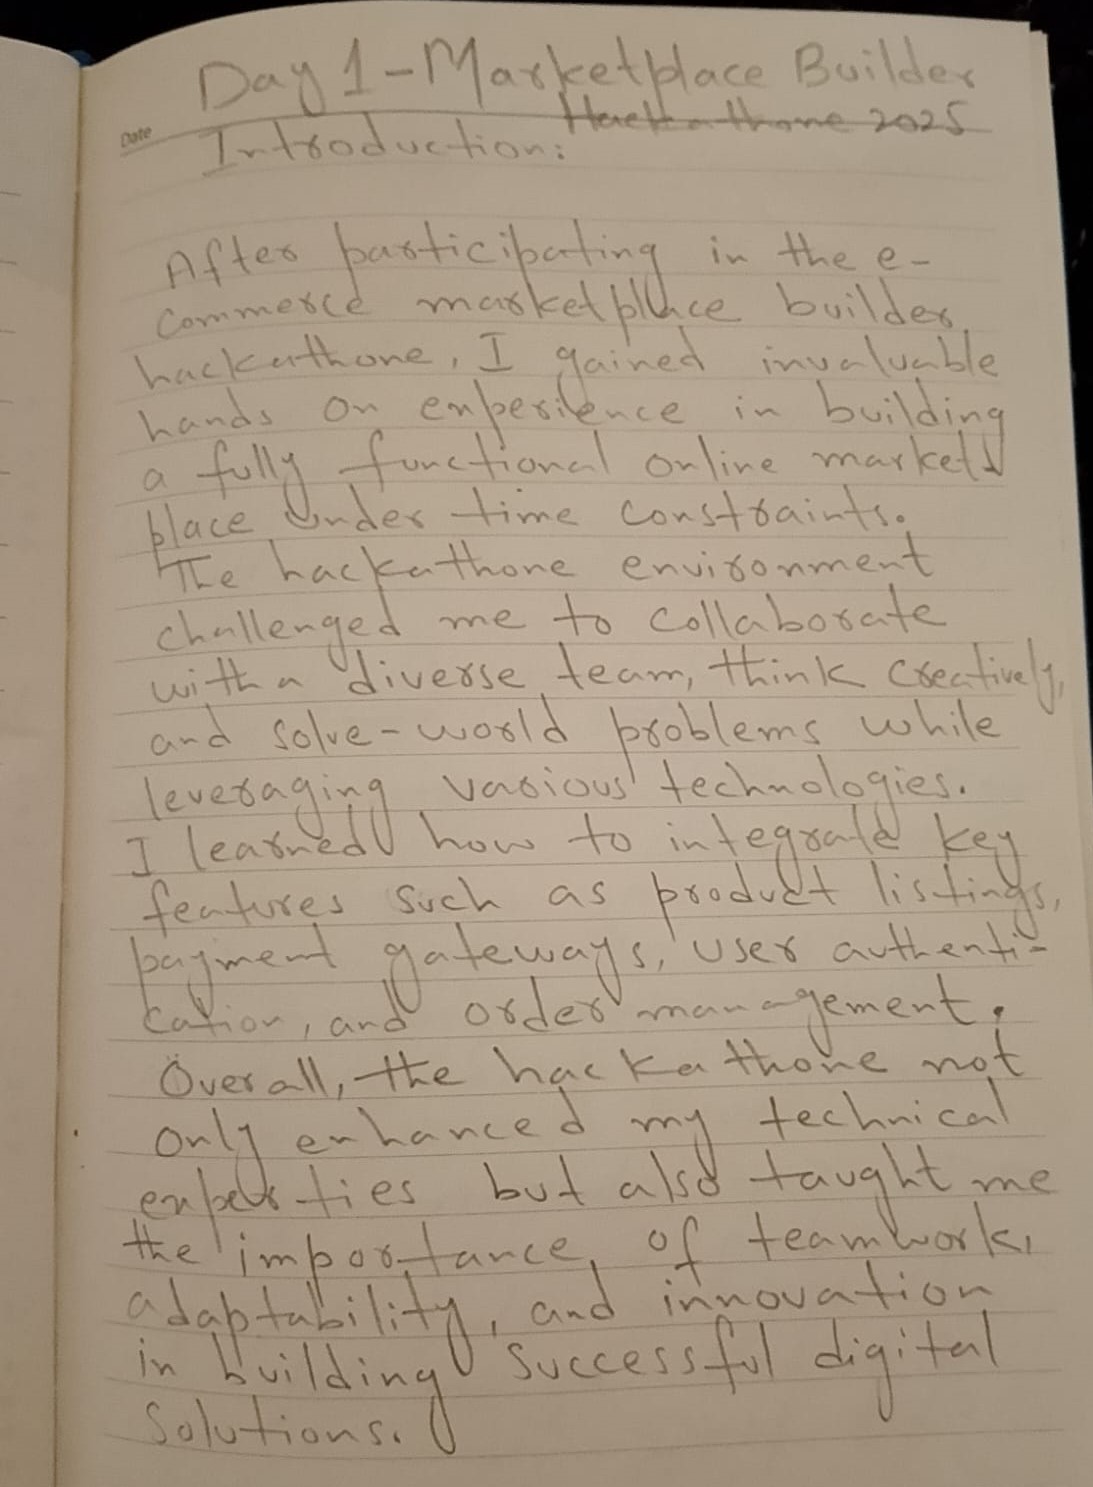 Day 1-Marketplace Builder
Hackathone 2025
Date
Introduction:
After participating in the e-
commerce marketplace builder
hackathone, I gained invaluable
hands on experience in building
a fully functional online market
place under time constraints.
The hackathone environment
challenged me to collaborate
with a diverse team, think creatively,
and solve-world problems while
leveraging various technologies.
I learned how to integrate key
features such as product listings,
payment gateways, user authenti-
cation, and order management.
Overall, the hackathone not
only enhanced my technical
experties but also taught me
the importance of teamwork,
adaptability, and innovation
in building successful digital
solutions.